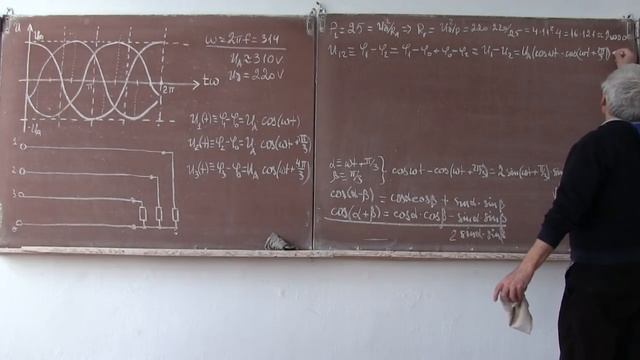 u
U_A
-U_A
π
2π
tω
ω = 2πf = 314
U_A ≈ 310 V
U_э = 220 V
U_1(t) ≡ φ_1 - φ_0 = U_A cos(ωt)
U_2(t) ≡ φ_2 - φ_0 = U_A cos(ωt + 2π/3)
U_3(t) ≡ φ_3 - φ_0 = U_A cos(ωt + 4π/3)
1
2
3
0
P_1 = 25 = U_э²/R_1 ⇒ R_1 = U_э²/P = 220·220/25 = 4·11·4·11·4 = 16·121 =
U_12 ≡ φ_1 - φ_2 = φ_1 - φ_0 + φ_0 - φ_2 = U_1 - U_2 = U_A(cos ωt - cos(ωt + 2π/3)) =
α ≡ ωt + π/3
β ≡ π/3
cos ωt - cos(ωt + 2π/3) = 2 sin(ωt + π/3) sin
cos(α-β) = cosα cosβ + sinα·sinβ
cos(α+β) = cosα·cosβ - sinα·sinβ
2 sinα·sinβ